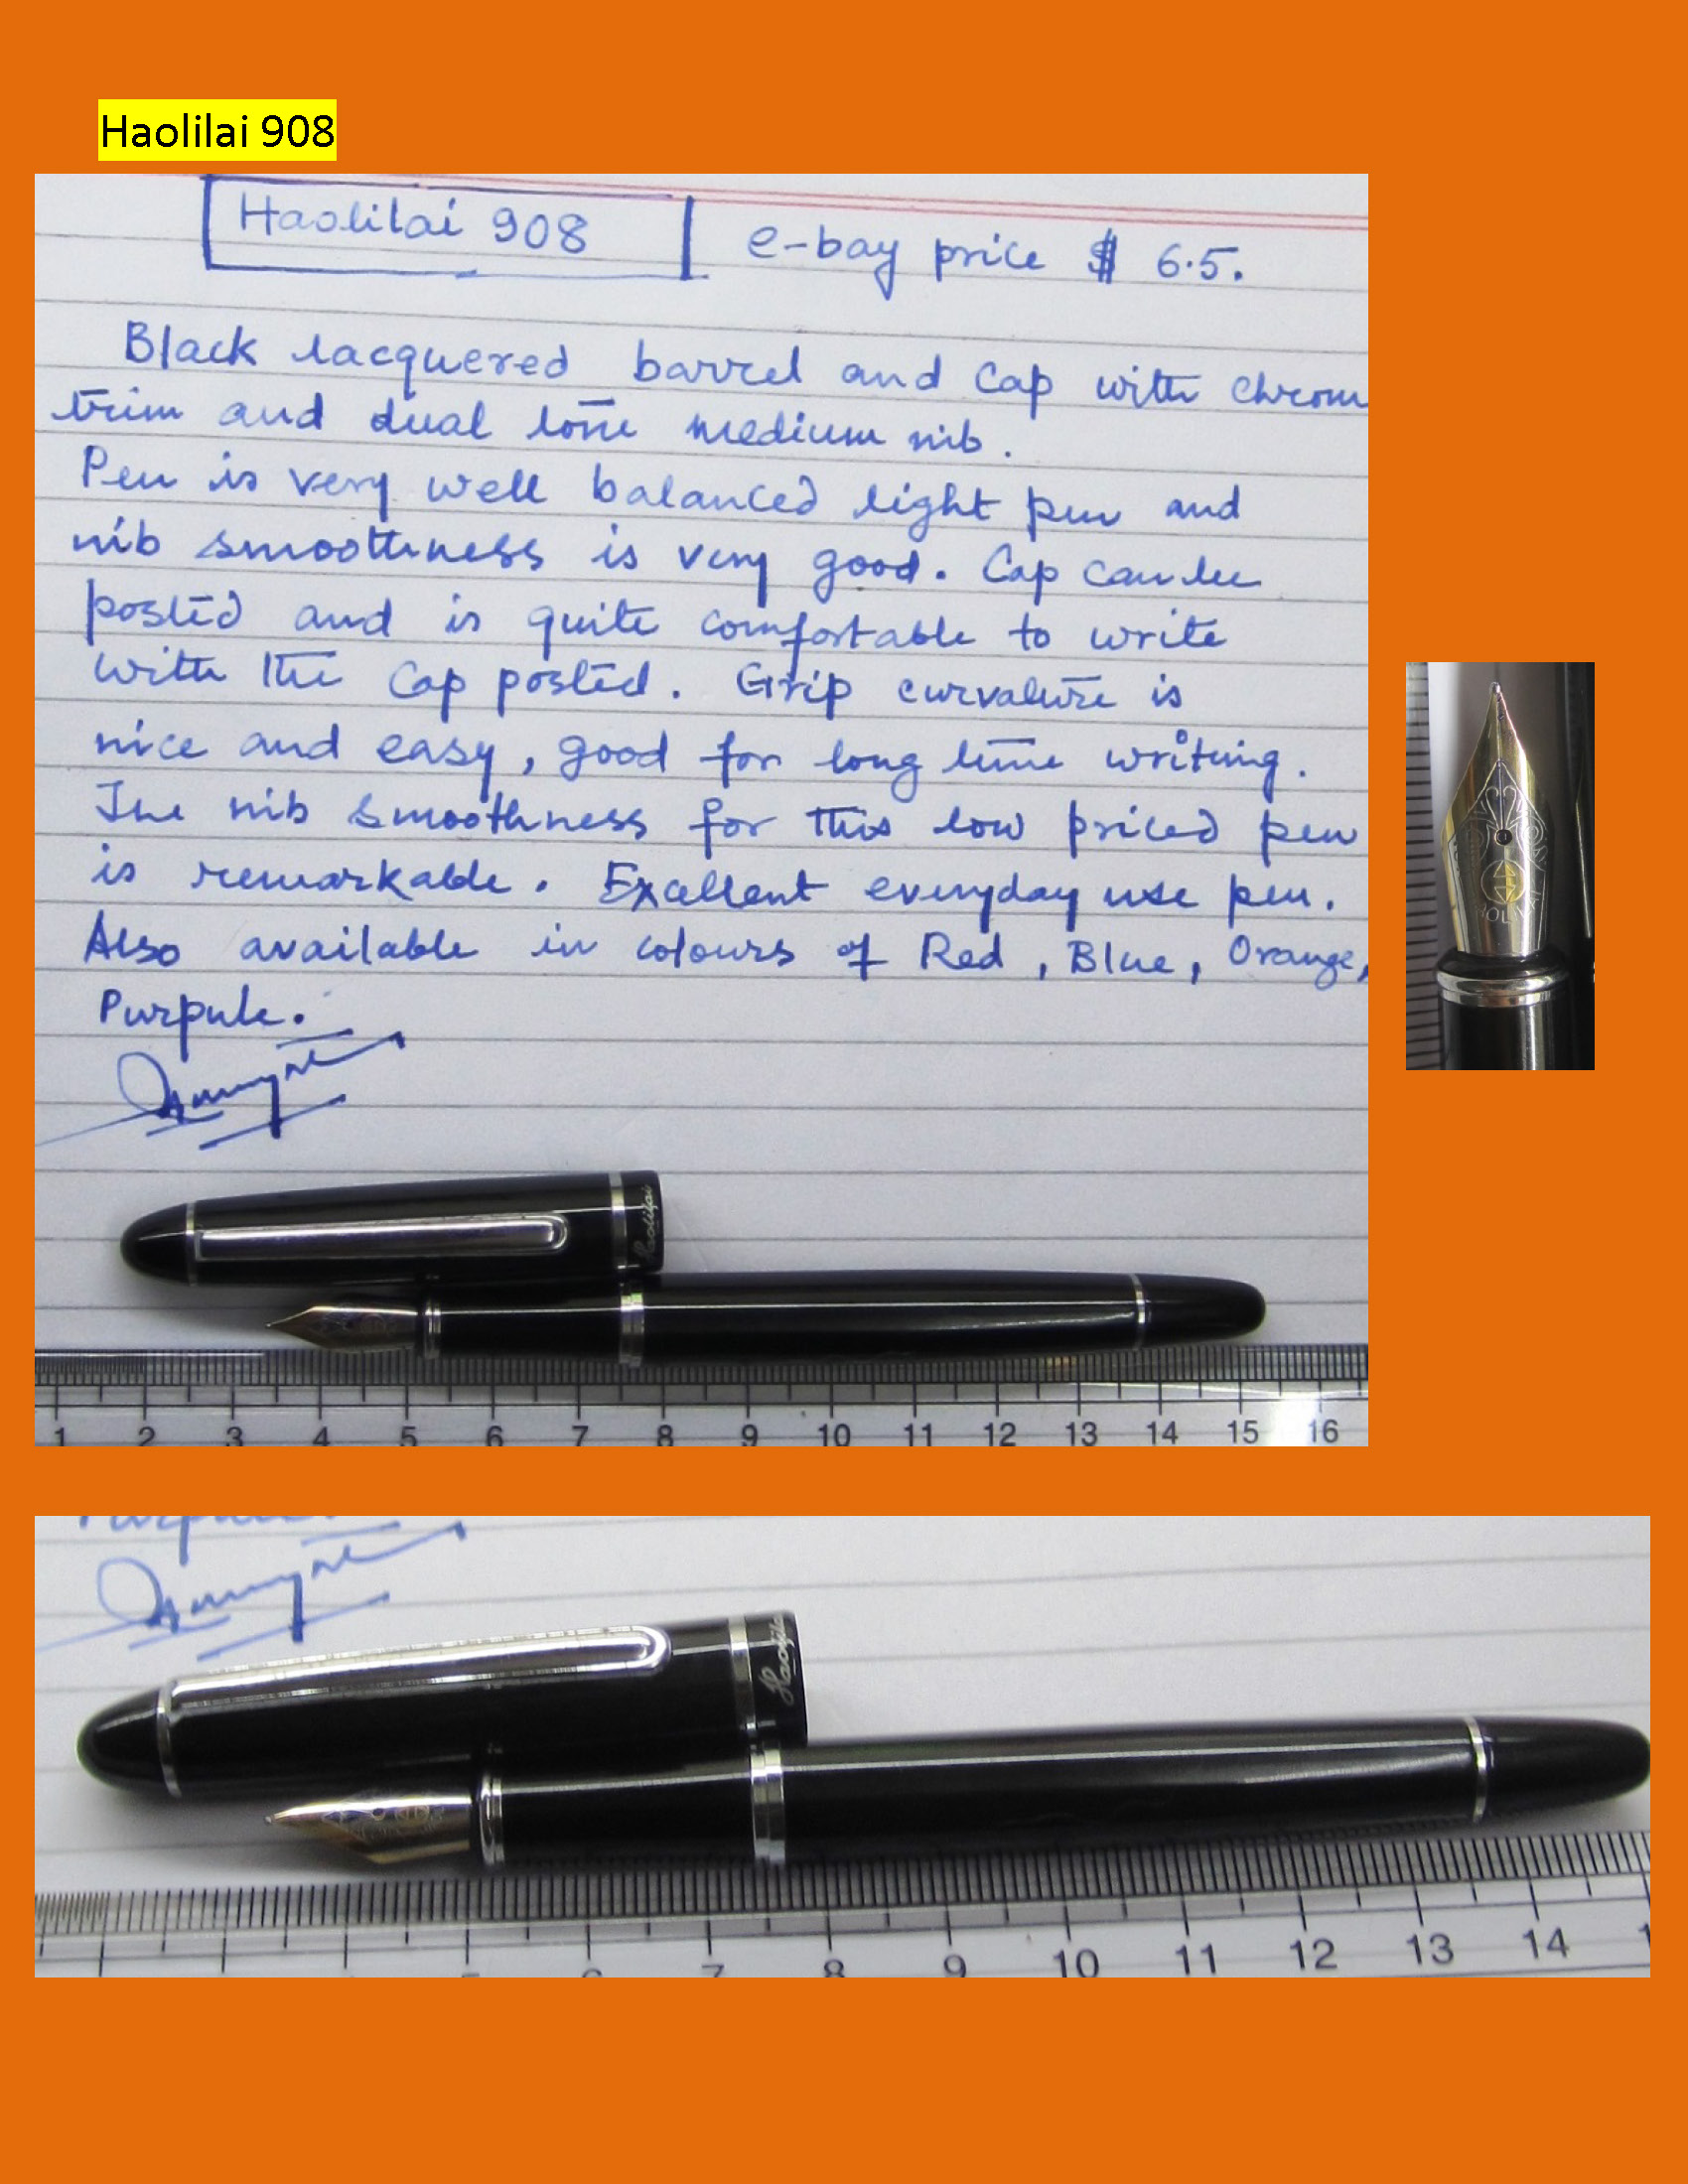 Haolilai 908
Haolilai 908 e-bay price $ 6.5.
Black lacquered barrel and Cap with chrom
trim and dual tone medium nib.
Pen is very well balanced light pen and
nib smoothness is very good. Cap can be
posted and is quite comfortable to write
with the Cap posted. Grip curvature is
nice and easy, good for long time writing.
The nib smoothness for this low priced pen
is remarkable. Excellent everyday use pen.
Also available in colours of Red, Blue, Orange,
Purpule.
Haolilai
1 2 3 4 5 6 7 8 9 10 11 12 13 14 15 16
7 8 9 10 11 12 13 14